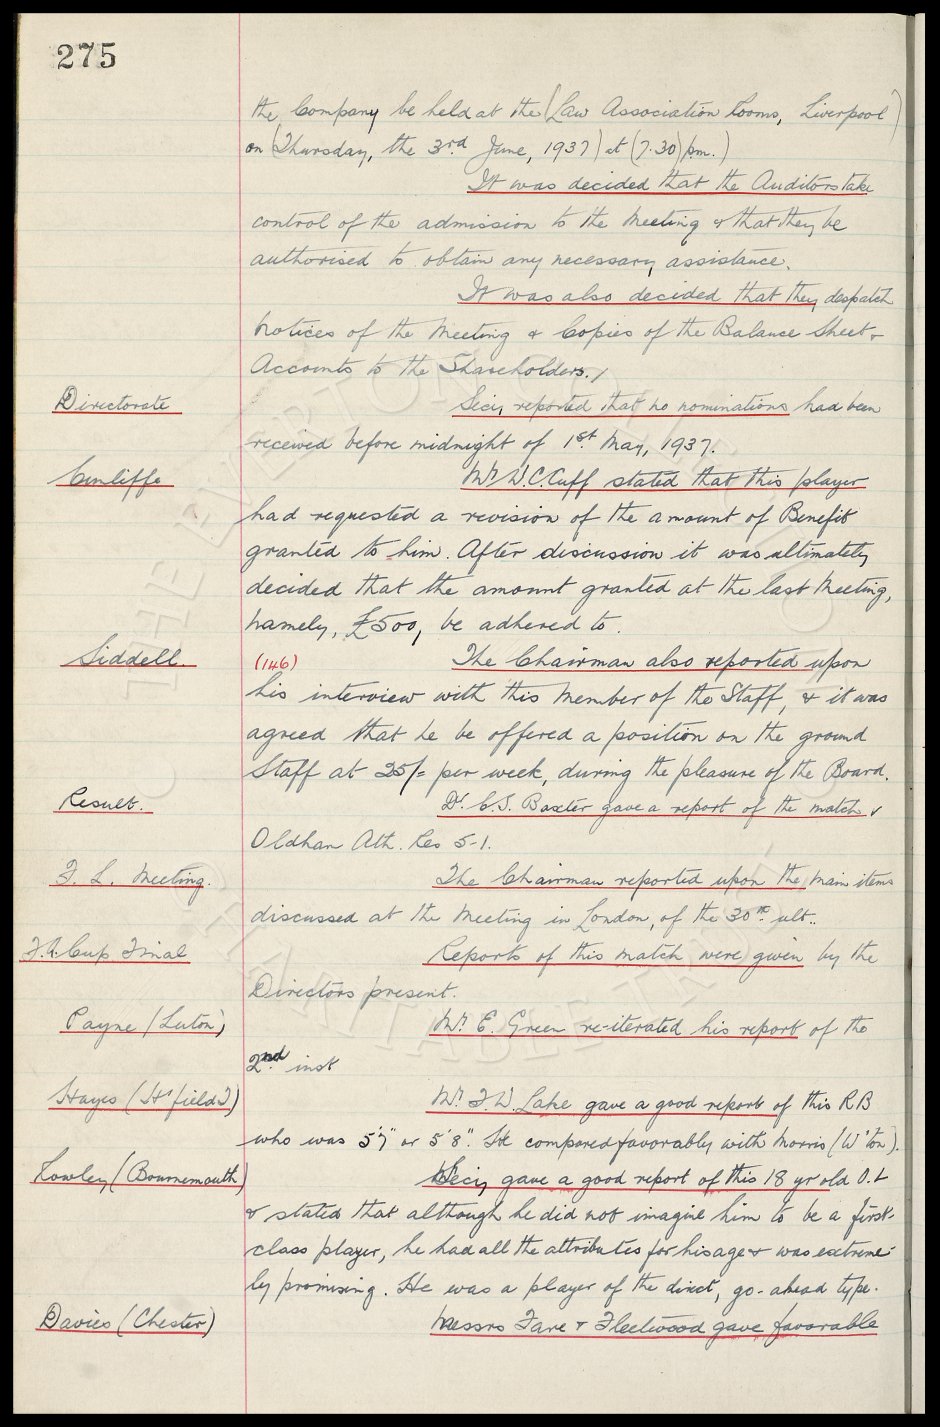 275
the Company be held at the (Law Association Rooms, Liverpool)
on (Thursday, the 3rd June, 1937) at (7.30) p.m.)
It was decided that the Auditors take
control of the admission to the Meeting & that they be
authorised to obtain any necessary assistance.
It was also decided that they despatch
Notices of the Meeting & Copies of the Balance Sheet &
Accounts to the Shareholders.
Directorate
Secy reported that no nominations had been
received before midnight of 1st May, 1937.
Cunliffe
Mr W.C. Cuff stated that this player
had requested a revision of the amount of Benefit
granted to him. After discussion it was ultimately
decided that the amount granted at the last Meeting,
namely, £500, be adhered to.
Siddell.
(146)
The Chairman also reported upon
his interview with this Member of the Staff, & it was
agreed that he be offered a position on the ground
Staff at 25/= per week, during the pleasure of the Board.
Result.
Dr. C.S. Baxter gave a report of the match v
Oldham Ath. Res 5-1.
F. L. Meeting.
The Chairman reported upon the main items
discussed at the Meeting in London, of the 30th ult..
F.A. Cup Final
Reports of this match were given by the
Directors present.
Payne (Luton)
Mr. E. Green re-iterated his report of the
2nd inst
Hayes (H'sfield T)
Mr. F.W. Lake gave a good report of this RB
who was 5'7" or 5'8". He compared favorably with Morris (W'ton).
Rowley (Bournemouth)
Secy gave a good report of this 18 yr old O.L
& stated that although he did not imagine him to be a first-
class player, he had all the attributes for his age & was extreme-
ly promising. He was a player of the direct, go-ahead type.
Davies (Chester)
Messrs Fare & Fleetwood gave favorable
THE EVERTON
CHARITABLE TRUST